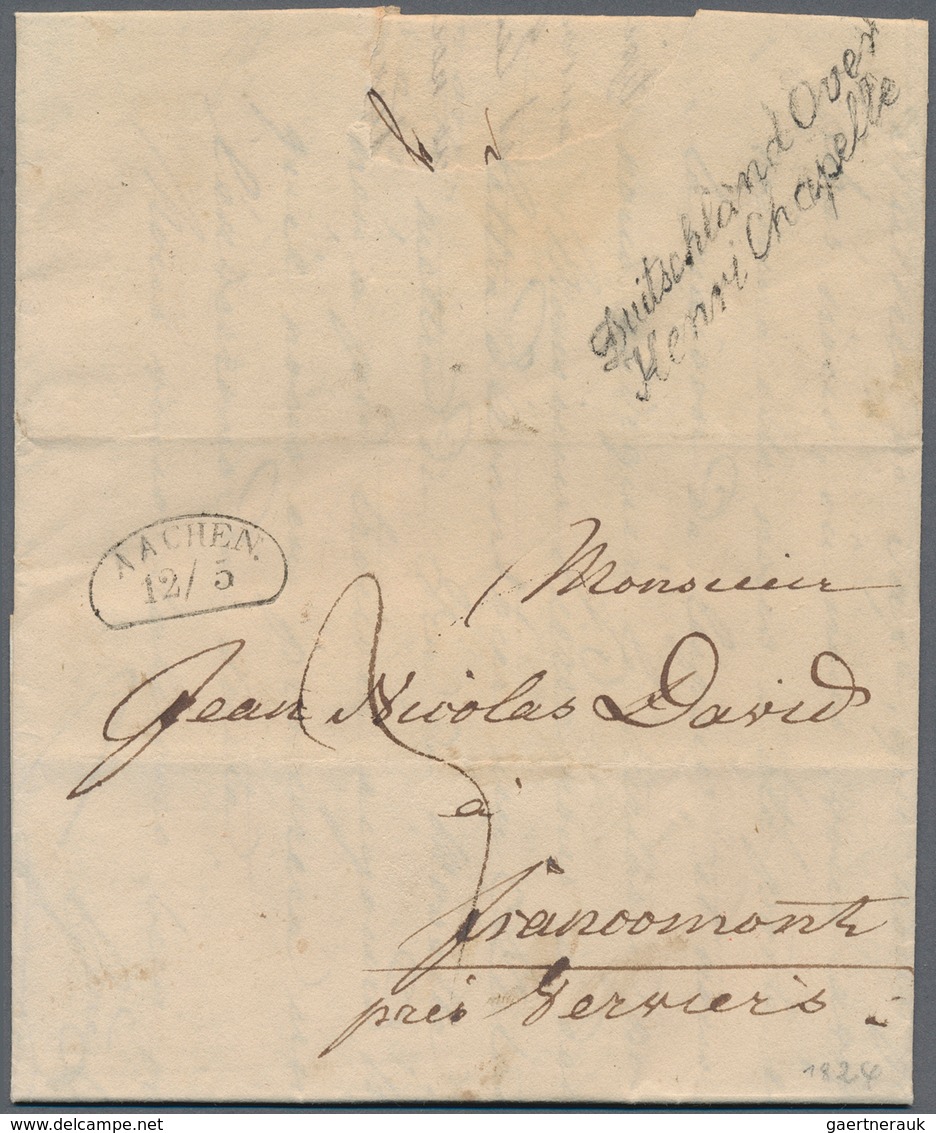 Duitschland Over
Henri Chapelle
AACHEN.
12/5
Monsieur
Jean Nicolas David
à
francomont
près Verviers
1824
gaertnerauk@delcampe.net